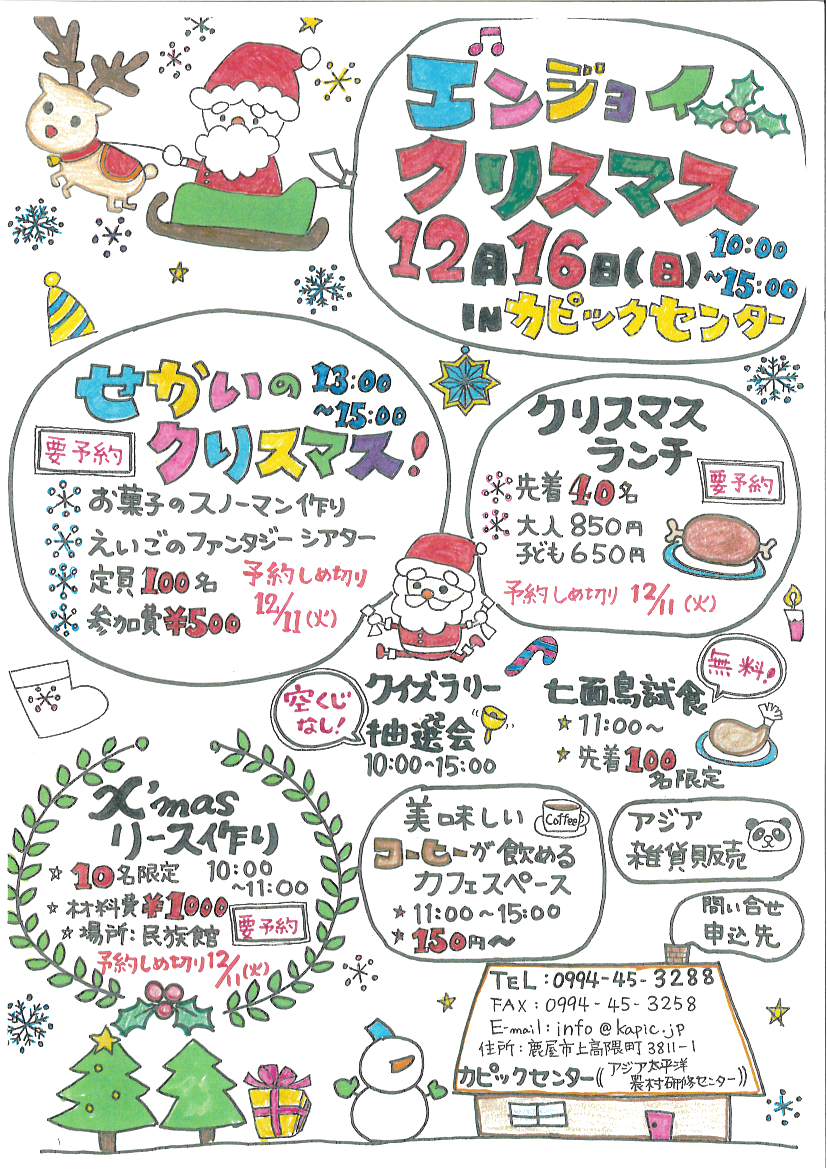 エンジョイ
クリスマス
12月16日(日)
10:00
~15:00
IN カピックセンター
せかいの
クリスマス!
13:00
~15:00
要予約
お菓子のスノーマン作り
えいごのファンタジーシアター
定員100名
参加費¥500
予約しめ切り
12/11(火)
クリスマス
ランチ
先着40名
要予約
大人850円
子ども650円
予約しめ切り 12/11(火)
空くじ
なし!
クイズラリー
抽選会
10:00~15:00
七面鳥試食
無料!
11:00~
先着100
名限定
X'mas
リース作り
10名限定 10:00
~11:00
材料費¥1000
場所:民族館
要予約
予約しめ切り12/11(火)
美味しい
Coffee
コーヒーが飲める
カフェスペース
11:00~15:00
150円~
アジア
雑貨販売
問い合せ
申込先
TEL:0994-45-3288
FAX:0994-45-3258
E-mail:info@kapic.jp
住所:鹿屋市上高隈町3811-1
カピックセンター((アジア太平洋
農村研修センター))